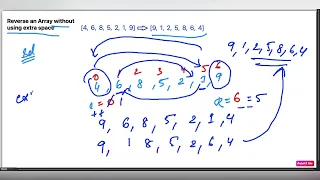 Reverse an Array without
using extra space
[4, 6, 8, 5, 2, 1, 9] ⇨ [9, 1, 2, 5, 8, 6, 4]
9, 1, 2, 5, 8, 6, 4
0 1 2 3 5 6
4, 6, 8, 5, 2, 1, 9
= 6 = 5
++
9, 6, 8, 5, 2, 1, 4
9, 1 8, 5, 2, 6, 4